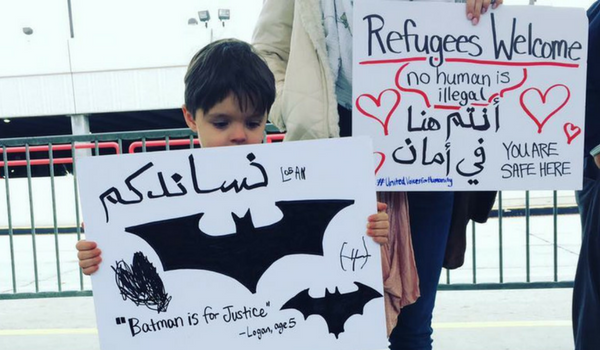 نساندكم
LOGAN
"Batman is for Justice"
-Logan, age 5
Refugees Welcome
no human is
illegal
أنتم هنا
في أمان
YOU ARE
SAFE HERE